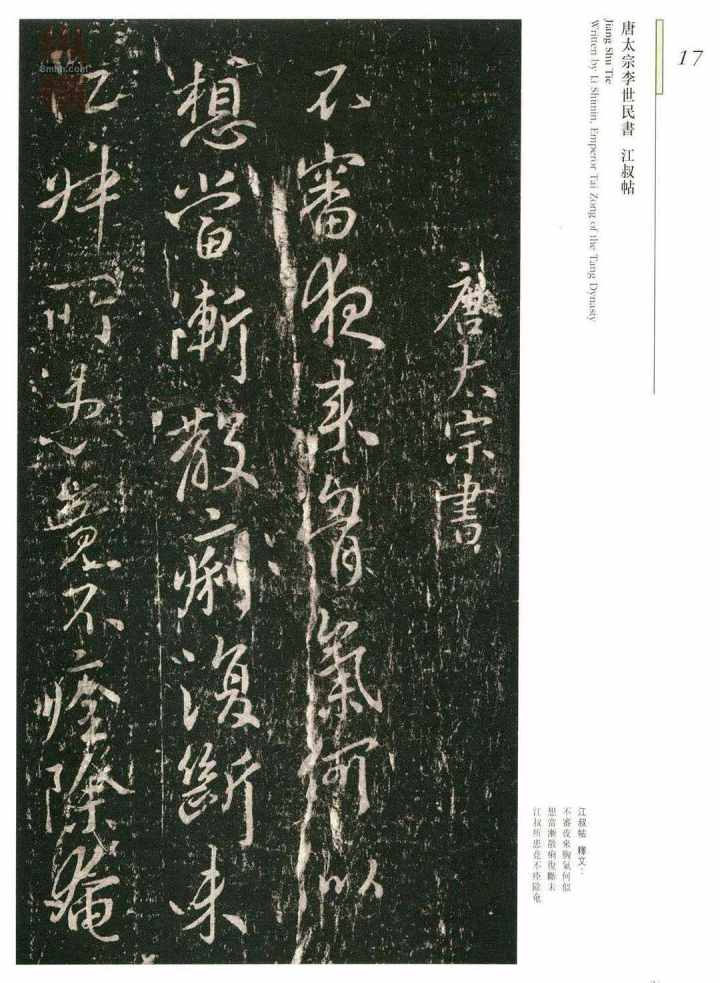 17
唐太宗李世民書 江叔帖
Jiang Shu Tie
Written by Li Shimin, Emperor Tai Zong of the Tang Dynasty
唐太宗書
不審夜來胸氣何以
想當漸散痢復斷未
江叔所患竟不痊除奄
江叔帖 釋文：
不審夜來胸氣何似
想當漸散痢復斷未
江叔所患竟不痊除奄